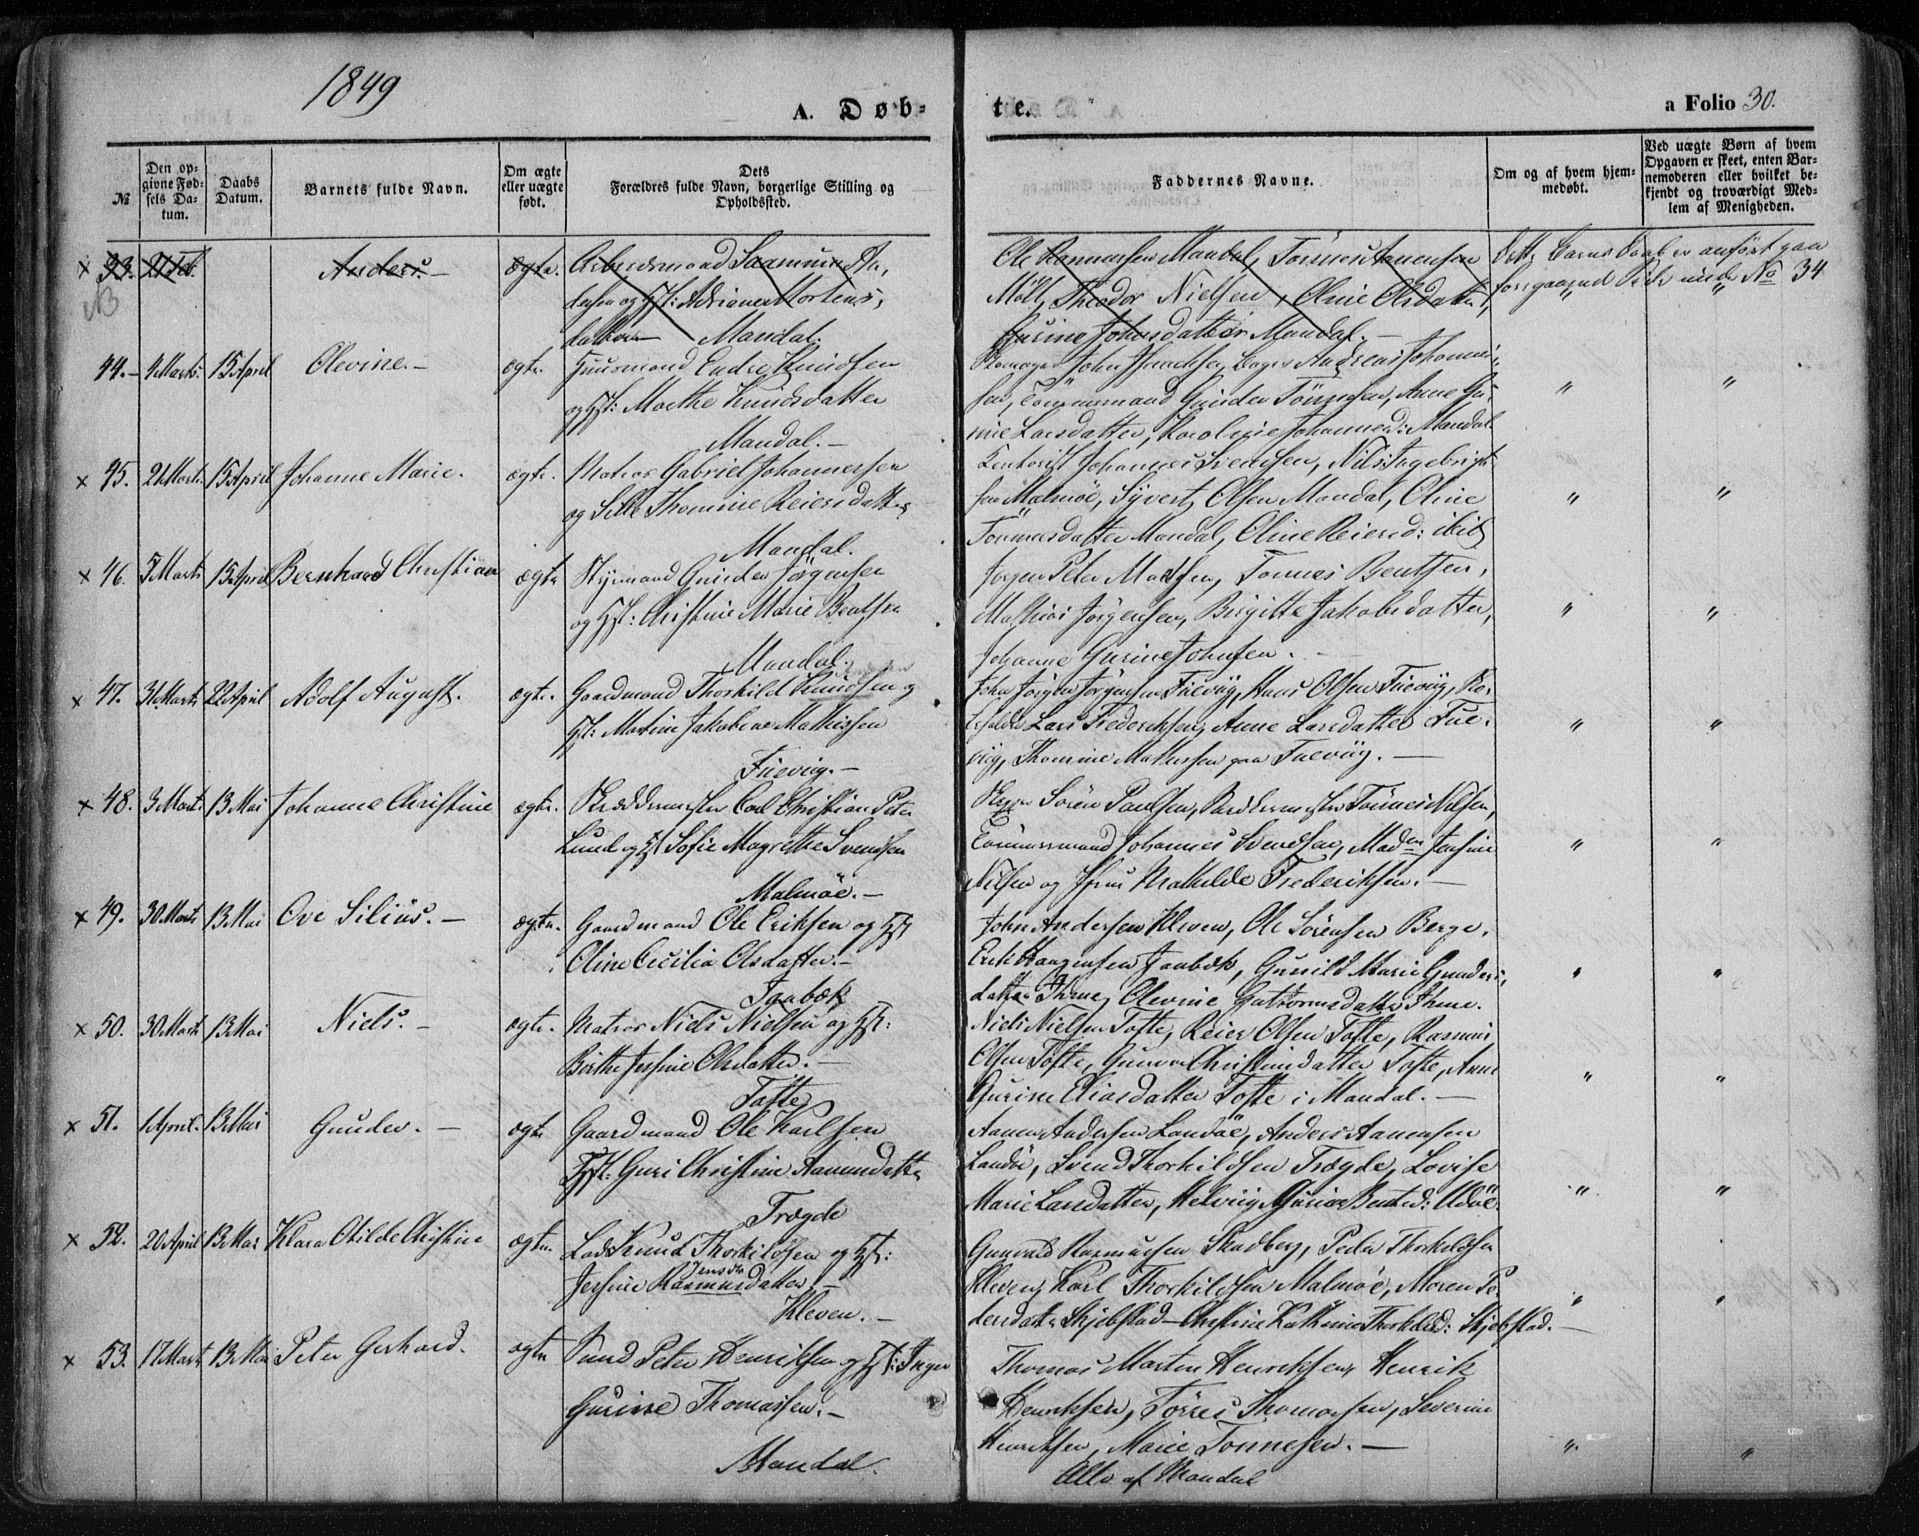 1849
A. Døb-
te.
a Folio 30.
№
Den op-
givne Fød-
sels Da-
tum.
Daabs
Datum.
Barnets fulde Navn.
Om ægte
eller uægte
født.
Dets
Forældres fulde Navn, borgerlige Stilling og
Opholdssted.
Faddernes Navne.
Om og af hvem hjem-
medøbt.
Ved uægte Børn af hvem
Opgaven er skeet, enten Bar-
nemoderen eller hvilket be-
kjendt og troværdigt Med-
lem af Menigheden.
× Anders. – ægte. Arbeidsmand
NB
og Hst: Adriane Mortens-
datter Mandal.
Ole Rasmussen Mandal, Tönnes Aanensen
Theodor Nielsen, Oline Olsdatter,
Gurine Johnsdatter Mandal. –
Dette Barns Daab er anført paa
foregaaende Side under No 34
44. – 4 Marts. 15 April Olevine. – ægte. Huusmand Endre Knudsen
og Hst: Marthe Knudsdatter
Mandal. –
John Andreas Johannes-
sen, Tömmermand Gunder Tönnesen, Anne Gu-
rine Larsdatter, Karoline Johannesd: Mandal
× 45. 21 Marts. 15 April Johanne Marie. ægte. Matros Gabriel Johannessen
og Sille Thomine Reiersdatter
Mandal.
Johannes Svensen, Nils Ingebrigt-
sen Malmöe, Syvert Olsen Mandal, Oline
Tönnesdatter Mandal, Oline Reiersd: ibid
× 46. 5 Marts 15 April Bernhard Christian ægte Styrmand Gunder Jörgensen
og Hst: Christine Marie Bentsen
Mandal.
Jörgen Peter Madsen, Tönnes Bentsen,
Mathias Jörgensen, Birgitte Jakobsdatter,
Johanne Gurine Johnsen. –
× 47. 31 Marts 22 April Adolf August. ægte. Gaardmand Thorkild Knudsen og
Hst: Martine Jakobine Mathissen
Fuevig. –
John Jörgen Jörgensen Fuevig, Hans Olsen Fuevig,
Lars Frederiksen, Anne Larsdatter Fue-
vig, Thomine Mathissen paa Fuevig. –
× 48. 3 Marts. 13 Mai Johanne Christine ægte. Skræddermester Carl Christian Peter
Lund og Hst Sofie Magrethe Svendsen
Malmöe. –
Sören Paulsen, Tönnes Nilsen,
Tömmermand Johannes Svendsen, Maden Jensine
Nilsen og Jfru Mathilde Frederiksen. –
× 49. 30 Marts. 13 Mai Ove Silius. – ægte. Gaardmand Ole Eriksen og Hst
Oline Cecilia Olsdatter. –
John Andersen Kleven, Ole Sörensen Berge,
Erik Gunild Marie Gunders-
datter Ihme, Olevine Guttormsdatter Ihme.
× 50. 30 Marts 13 Mai Niels. – ægte. Matros Niels Nielsen og Hst:
Birthe Jesine Olsdatter. –
Tofte
Niels Nielsen Tofte, Reier Olsen Tofte, Rasmus
Olsen Tofte, Gunvor Christensdatter Tofte, Anne
Gurine Eliasdatter Tofte i Mandal. –
× 51. 1 April. 13 Mai Gunder. – ægte Gaardmand Ole Karlsen
Hst: Guri Christine Aamundsdatter
Trægde
Aanen Andersen Landöe, Anders Aanensen
Landöe, Svend Thorkildsen Trægde, Lovise
Marie Larsdatter, Helvig Gurine Bentsd: Udöe.
× 52. 20 April 13 Mai Klara Otilde Christine ægte. Lods Knud Thorkildsen og Hst:
Jensdr
Jesine Rasmusdatter. –
Kleven. –
Gunvald Rasmussen Skadberg, Peder Thorkildsen
Kleven, Karl Thorkildsen Malmöe, Maren Pe-
dersdatter Skjebstad – Christine Kathrine Thorkildsd: Skjebstad. –
× 53. 17 Marts 13 Mai Peter Gerhard. ægte Peter Henriksen og Hst: Inger
Gurine Thomassen. –
Mandal.
Thomas Martin Henriksen, Henrik
Henriksen, Törres Thomassen, Severine
Henriksen, Marie Tönnesen. –
Alle af Mandal